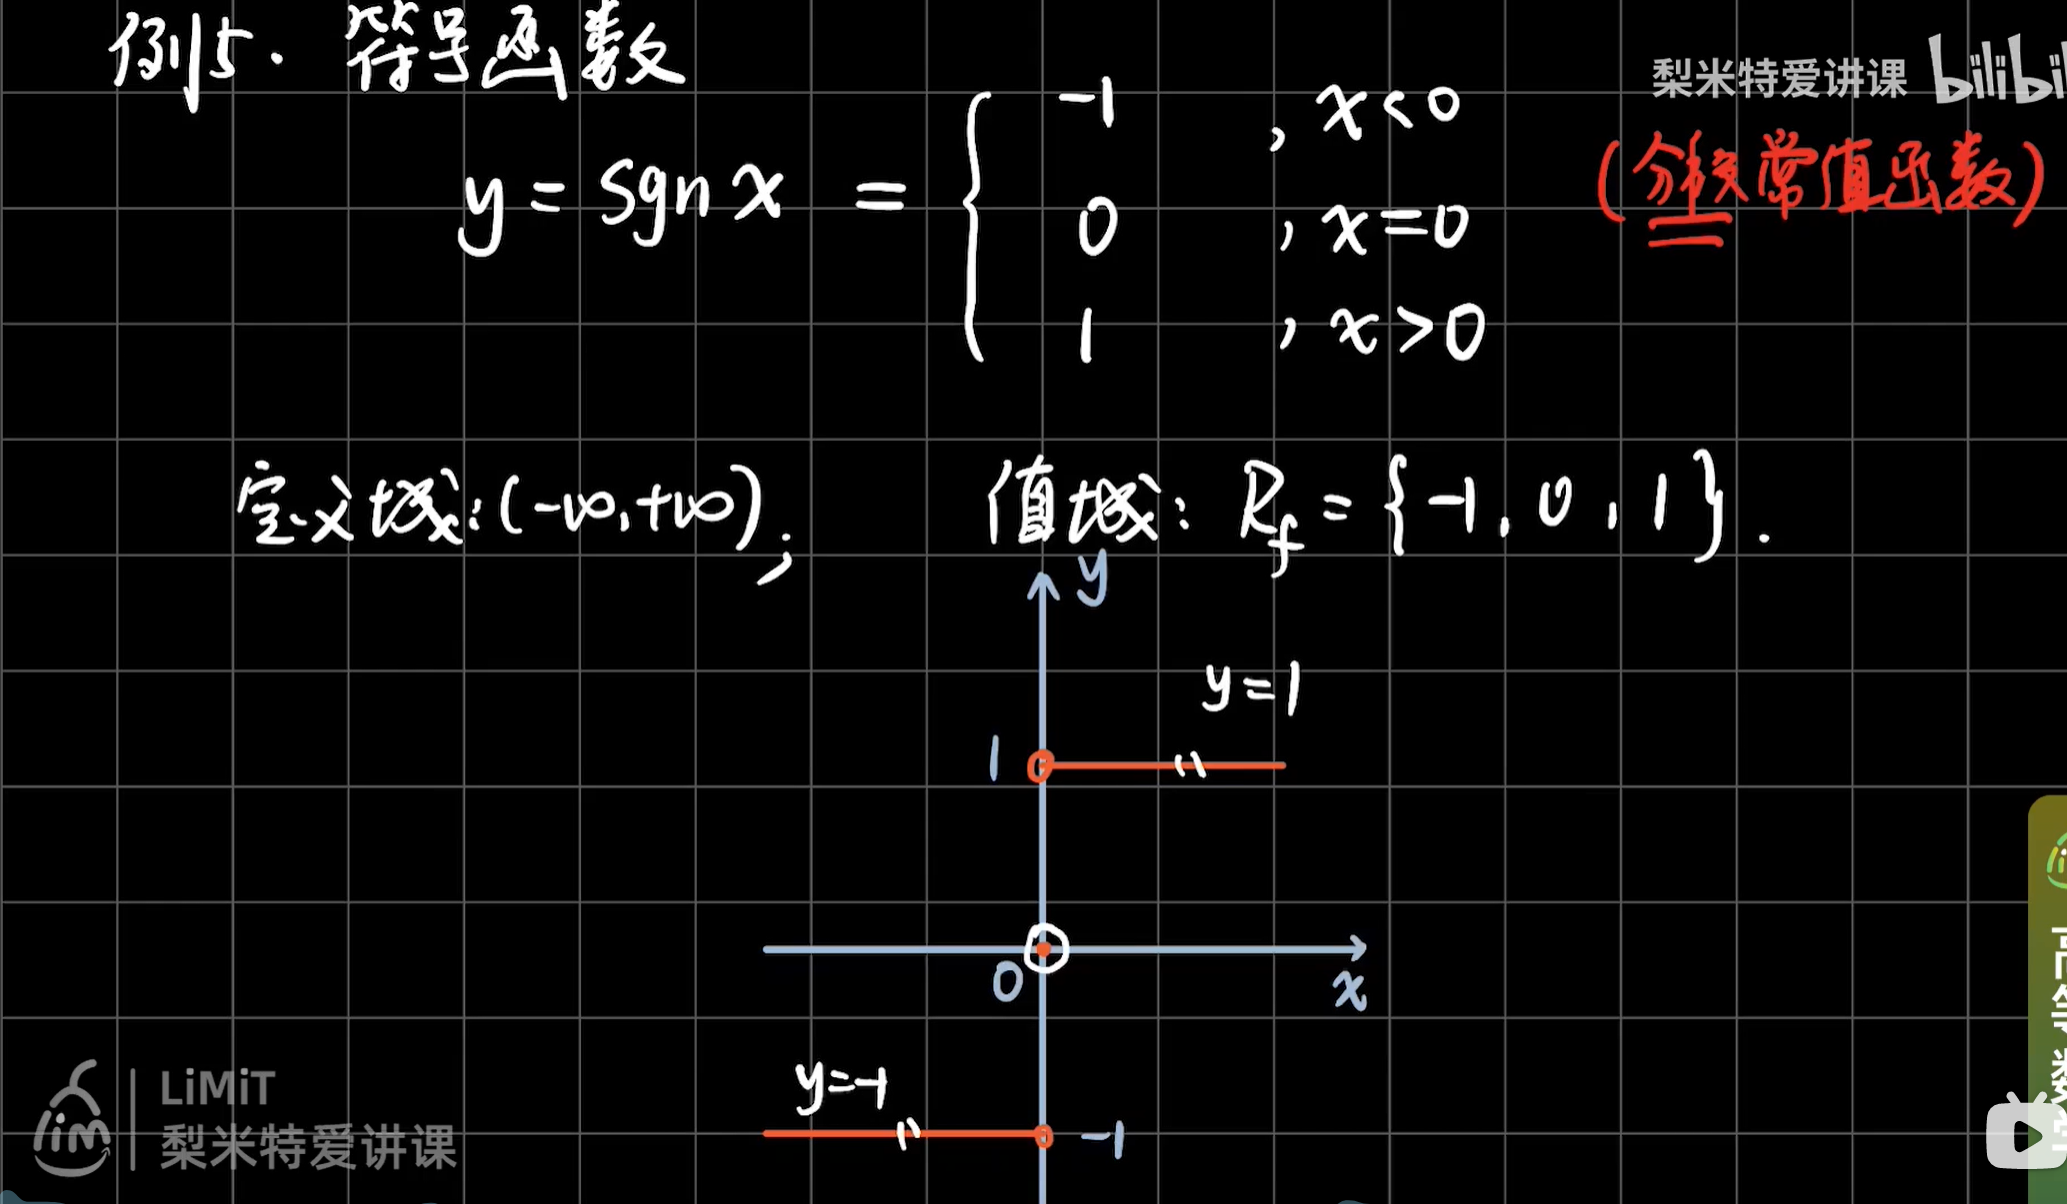 例5. 符号函数
梨米特爱讲课 bilibil
y = sgn x = { -1 , x<0
0 , x=0
1 , x>0
(分段常值函数)
定义域:(-∞,+∞); 值域: R_f = {-1, 0, 1}.
y
y=1
1
0
x
y=-1
-1
LiMiT
梨米特爱讲课
lim
高等数学